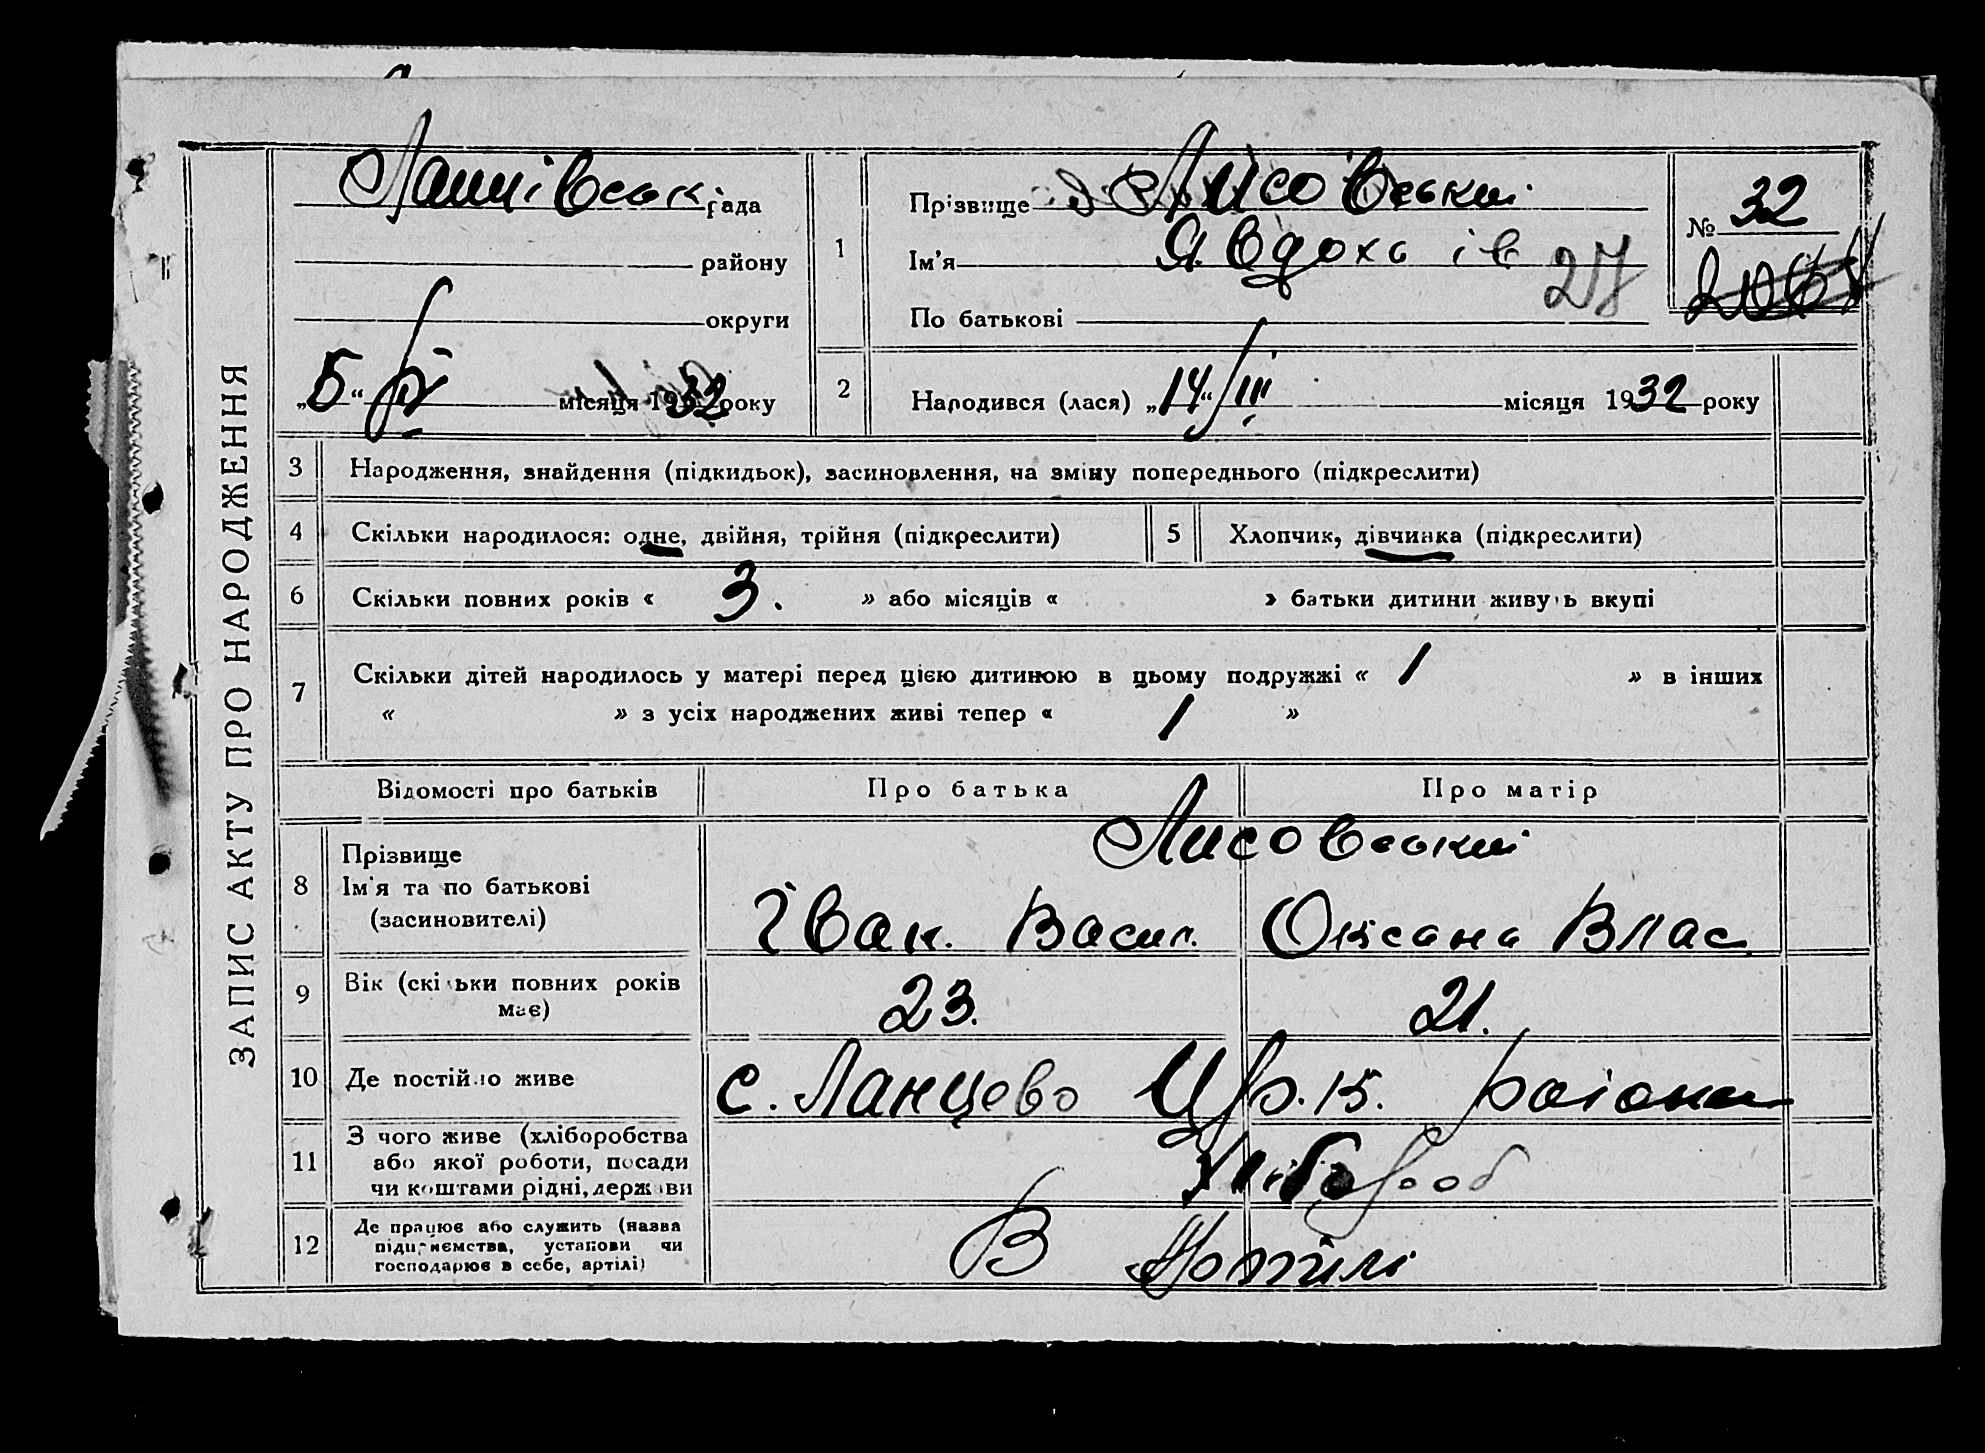 ЗАПИС АКТУ ПРО НАРОДЖЕННЯ
рада
району
округи
„5“ IV місяця 1932 року
1 Прізвище Лисовський
Ім'я Явдоха ів
По батькові
27
№ 32
2 Народився (лася) „14“ III місяця 1932 року
3 Народження, знайдення (підкидьок), засиновлення, на зміну попереднього (підкреслити)
4 Скільки народилося: одне, двійня, трійня (підкреслити) 5 Хлопчик, дівчинка (підкреслити)
6 Скільки повних років « 3. » або місяців « » батьки дитини живуть вкупі
7 Скільки дітей народилось у матері перед цією дитиною в цьому подружжі « 1 » в інших
« » з усіх народжених живі тепер « 1 »
Відомості про батьків Про батька Про матір
8 Прізвище Лисовський
Ім'я та по батькові
(засиновителі) Іван. Васил. Оксана Влас
9 Вік (скільки повних років має) 23. 21.
10 Де постійно живе с. Ланцево
11 З чого живе (хліборобства
або якої роботи, посади
чи коштами рідні, держави Хлібороб
12 Де працює або служить (назва
підприємства, установи чи
господарює в себе, артілі) В Артілі